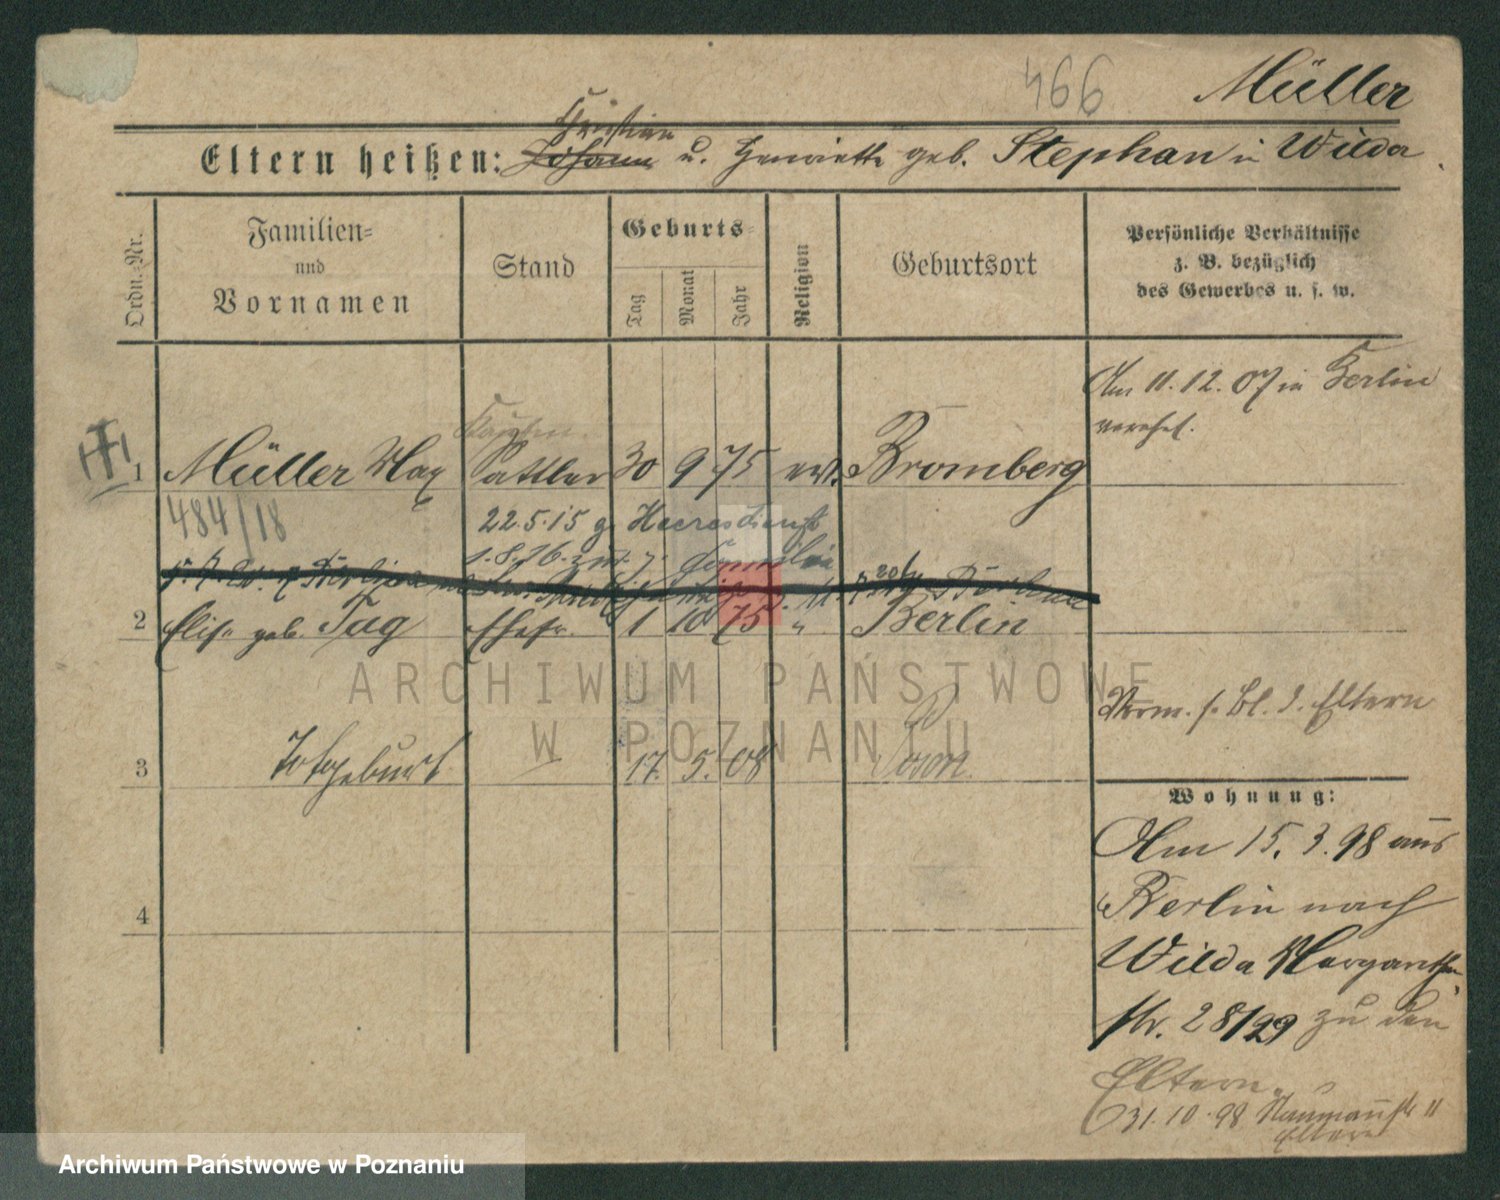 466 Müller
Christian
Eltern heißen: Johann u. Henriette geb. Stephan in Wilda
Ordn.-Nr.
Familien-
und
Vornamen
Stand
Geburts-
Tag
Monat
Jahr
Religion
Geburtsort
Persönliche Verhältnisse
z. B. bezüglich
des Gewerbes u. s. w.
Am 11.12.07 in Berlin
verehel.
1 Müller Max Sattler 30 9 75 ev. Bromberg
484/18
22.5.15 z. Heeresdienst
1.8.16 zur. z. Familie
2 Elise geb. Tag Ehefr. 1 10 75 " Berlin
Verm. s. Bl. d. Eltern
3 Totgeburt — 17. 5. 08 Posen
4
Wohnung:
Am 15.3.98 aus
Berlin nach
Wilda Margarethen
str. 28/29 zu den
Eltern.
31.10.98 Naumannstr 11
Eltern
ARCHIWUM PAŃSTWOWE
W POZNANIU
Archiwum Państwowe w Poznaniu